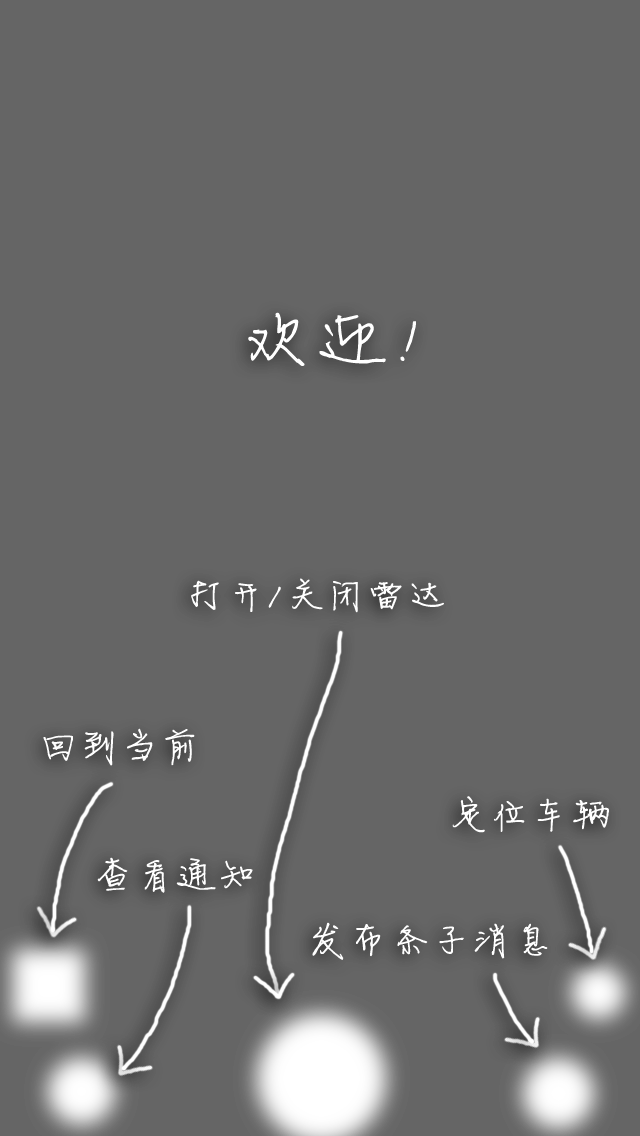 欢迎!
打开/关闭雷达
回到当前
定位车辆
查看通知
发布条子消息